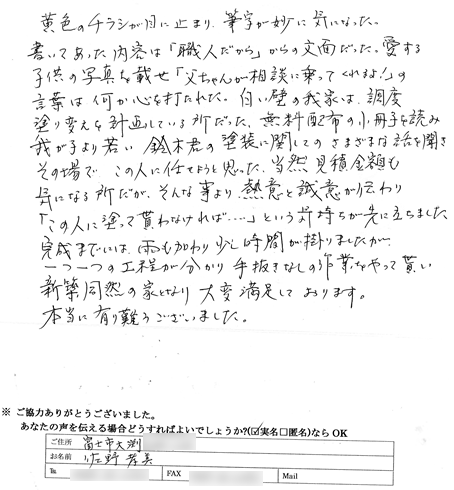 黄色のチラシが目に止まり、筆字が妙に気になった。
書いてあった内容は「職人だから」からの文面だった。愛する
子供の写真を載せ「父ちゃんが相談に乗ってくれるよ!」の
言葉は何か心を打たれた。白い壁の我家は、調度
塗り変えを計画している所だった、無料配布の小冊子を読み
我が子より若い鈴木君の塗装に関してのさまざまな話を聞き
その場で この人に任せようと思った。当然見積金額も
気になる所だが、そんな事より 熱意と誠意が伝わり
「この人に塗って貰わなければ……」という気持ちが先に立ちました
完成までには、雨も加わり少し時間が掛りましたが、
一つ一つの工程が分かり 手抜きなしの作業をやって貰い
新築同然の家となり 大変満足しております。
本当に有り難うございました。
※ ご協力ありがとうございました。
あなたの声を伝える場合どうすればよいでしょうか?(☑実名□匿名)なら OK
ご住所 富士市大渕
お名前 佐野孝美
℡ FAX Mail